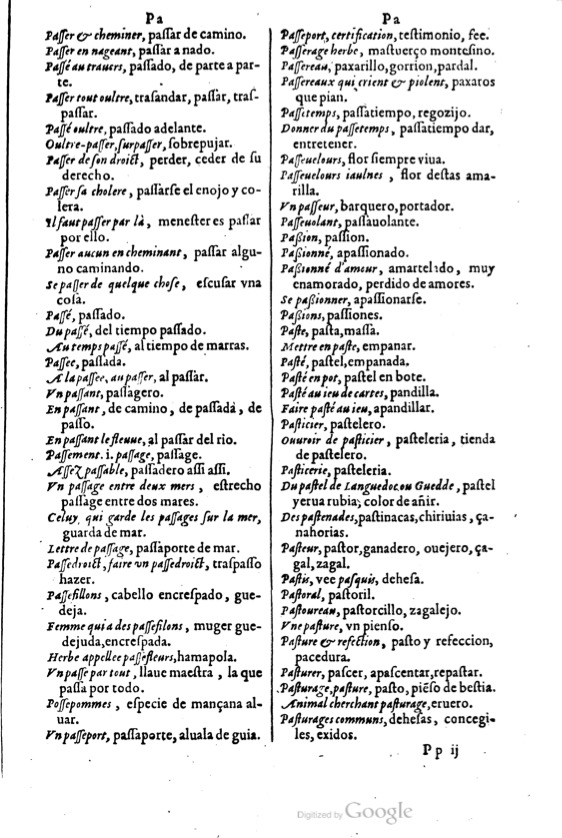 Pa
Passer & cheminer, paſſar de camino.
Passer en nageant, paſſar a nado.
Passé au trauers, paſſado, de parte a par-
te.
Passer tout oultre, traſandar, paſſar, traſ-
paſſar.
Passé oultre, paſſado adelante.
Oultre-passer, surpasser, ſobrepujar.
Passer de son droict, perder, ceder de ſu
derecho.
Passer sa cholere, paſſarſe el enojo y co-
lera.
Il faut passer par là, meneſter es paſſar
por ello.
Passer aucun en cheminant, paſſar algu-
no caminando.
Se passer de quelque chose, eſcuſar vna
coſa.
Passé, paſſado.
Du passé, del tiempo paſſado.
Au temps passé, al tiempo de marras.
Passee, paſſada.
A la passee, au passer, al paſſar.
Vn passant, paſſagero.
En passant, de camino, de paſſada, de
paſſo.
En passant le fleuue, al paſſar del rio.
Passement. i. passage, paſſage.
Assez passable, paſſadero aſſi aſſi.
Vn passage entre deux mers, eſtrecho
paſſage entre dos mares.
Celuy qui garde les passages sur la mer,
guarda de mar.
Lettre de passage, paſſaporte de mar.
Passedroict, faire vn passedroict, traſpaſſo
hazer.
Passefillons, cabello encreſpado, gue-
deja.
Femme qui a des passefilons, muger gue-
dejuda, encreſpada.
Herbe appellee passefleurs, hamapola.
Vn passe par tout, llaue maeſtra, la que
paſſa por todo.
Possepommes, eſpecie de mançana al-
uar.
Vn passeport, paſſaporte, aluala de guia.
Pa
Passeport, certification, teſtimonio, fee.
Passerage herbe, maſtuerço monteſino.
Passereau, paxarillo, gorrion, pardal.
Passereaux qui crient & piolent, paxaros
que pian.
Passetemps, paſſatiempo, regozijo.
Donner du passetemps, paſſatiempo dar,
entretener.
Passeuelours, flor ſiempre viua.
Passeuelours iaulnes, flor deſtas ama-
rilla.
Vn passeur, barquero, portador.
Passeuolant, paſſauolante.
Paßion, paſſion.
Paßionné, apaſſionado.
Paßionné d'amour, amartelado, muy
enamorado, perdido de amores.
Se paßionner, apaſſionarſe.
Paßions, paſſiones.
Paste, paſta, maſſa.
Mettre en paste, empanar.
Pasté, paſtel, empanada.
Pasté en pot, paſtel en bote.
Pasté au ieu de cartes, pandilla.
Faire pasté au ieu, apandillar.
Pasticier, paſtelero.
Ouuroir de pasticier, paſteleria, tienda
de paſtelero.
Pasticerie, paſteleria.
Du pastel de Languedoc ou Guedde, paſtel
yerua rubia, color de añir.
Des pastenades, paſtinacas, chiriuias, ça-
nahorias.
Pasteur, paſtor, ganadero, ouejero, ça-
gal, zagal.
Pastis, vee pasquis, deheſa.
Pastoral, paſtoril.
Pastoureau, paſtorcillo, zagalejo.
Vne pasture, vn pienſo.
Pasture & refection, paſto y refeccion,
pacedura.
Pasturer, paſcer, apaſcentar, repaſtar.
Pasturage, pasture, paſto, piẽſo de beſtia.
Animal cherchant pasturage, eruero.
Pasturages communs, deheſas, concegi-
les, exidos.
Pp ij
Digitized by Google